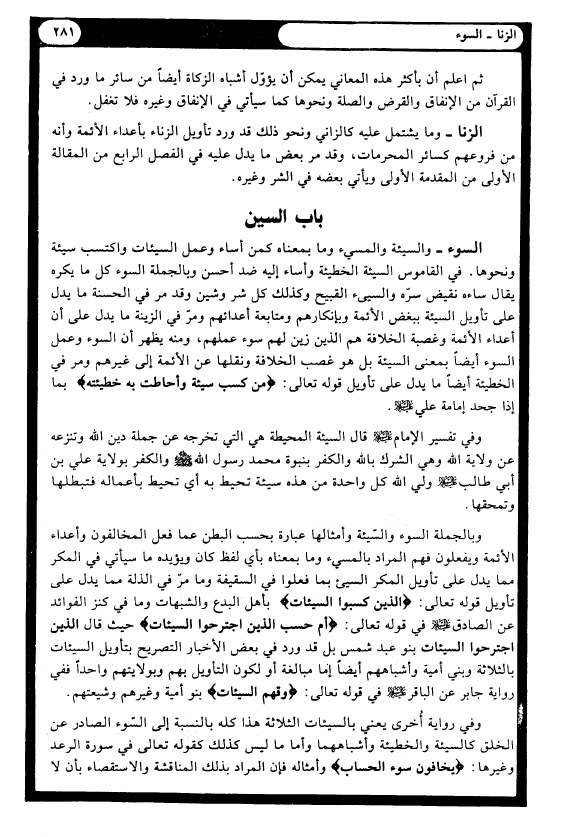 الزنا ـ السوء
٢٨١
ثم اعلم أن بأكثر هذه المعاني يمكن أن يؤوّل أشباه الزكاة أيضاً من سائر ما ورد في
القرآن من الإنفاق والقرض والصلة ونحوها كما سيأتي في الإنفاق وغيره فلا تغفل.
الزنا ـ وما يشتمل عليه كالزاني ونحو ذلك قد ورد تأويل الزناء بأعداء الأئمة وأنه
من فروعهم كسائر المحرمات، وقد مر بعض ما يدل عليه في الفصل الرابع من المقالة
الأولى من المقدمة الأولى ويأتي بعضه في الشر وغيره.
باب السين
السوء ـ والسيئة والمسيء وما بمعناه كمن أساء وعمل السيئات واكتسب سيئة
ونحوها. في القاموس السيئة الخطيئة وأساء إليه ضد أحسن وبالجملة السوء كل ما يكره
يقال ساءه نقيض سرّه والسيىء القبيح وكذلك كل شر وشين وقد مر في الحسنة ما يدل
على تأويل السيئة ببغض الأئمة وبإنكارهم ومتابعة أعدائهم ومرّ في الزينة ما يدل على أن
أعداء الأئمة وغصبة الخلافة هم الذين زين لهم سوء عملهم، ومنه يظهر أن السوء وعمل
السوء أيضاً بمعنى السيئة بل هو غصب الخلافة ونقلها عن الأئمة إلى غيرهم ومر في
الخطيئة أيضاً ما يدل على تأويل قوله تعالى: ﴿من كسب سيئة وأحاطت به خطيئته﴾ بما
إذا جحد إمامة علي عليه السلام.
وفي تفسير الإمام عليه السلام قال السيئة المحيطة هي التي تخرجه عن جملة دين الله وتنزعه
عن ولاية الله وهي الشرك بالله والكفر بنبوة محمد رسول الله ﷺ والكفر بولاية علي بن
أبي طالب عليه السلام ولي الله كل واحدة من هذه سيئة تحيط به أي تحيط بأعماله فتبطلها
وتمحقها.
وبالجملة السوء والسّيئة وأمثالها عبارة بحسب البطن عما فعل المخالفون وأعداء
الأئمة ويفعلون فهم المراد بالمسيء وما بمعناه بأي لفظ كان ويؤيده ما سيأتي في المكر
مما يدل على تأويل المكر السيئ بما فعلوا في السقيفة وما مرّ في الذلة مما يدل على
تأويل قوله تعالى: ﴿الذين كسبوا السيئات﴾ بأهل البدع والشبهات وما في كنز الفوائد
عن الصادق عليه السلام في قوله تعالى: ﴿أم حسب الذين اجترحوا السيئات﴾ حيث قال الذين
اجترحوا السيئات بنو عبد شمس بل قد ورد في بعض الأخبار التصريح بتأويل السيئات
بالثلاثة وبني أمية وأشباههم أيضاً إما مبالغة أو لكون التأويل بهم وبولايتهم واحداً ففي
رواية جابر عن الباقر عليه السلام في قوله تعالى: ﴿وقهم السيئات﴾ بنو أمية وغيرهم وشيعتهم.
وفي رواية أُخرى يعني بالسيئات الثلاثة هذا كله بالنسبة إلى السّوء الصادر عن
الخلق كالسيئة والخطيئة وأشباههما وأما ما ليس كذلك كقوله تعالى في سورة الرعد
وغيرها: ﴿يخافون سوء الحساب﴾ وأمثاله فإن المراد بذلك المناقشة والاستقصاء بأن لا